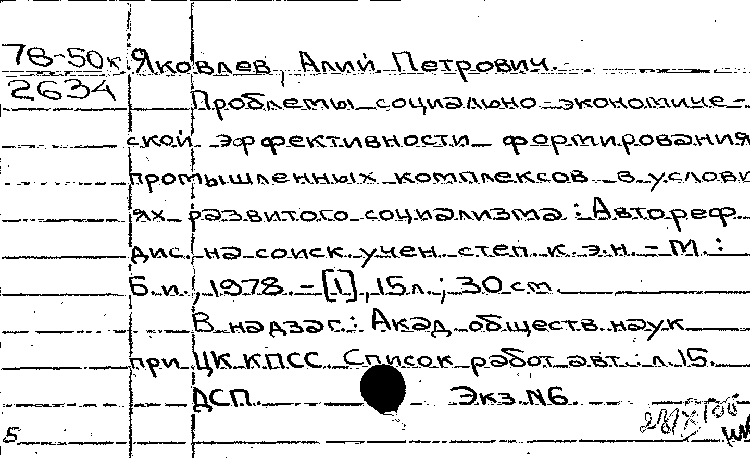 78-50к
2634
Яковлев, Алий Петрович.
Проблемы социально-экономиче-
ской эффективности формирования
промышленных комплексов в услови
ях развитого социализма: Автореф.
дис. на соиск. учен. степ. к.э.н. - М.:
Б.и., 1978. - [1], 15л.; 30 см.
В надзаг.: Акад. обществ. наук
при ЦК КПСС. Список работ авт.: л. 15.
ДСП. Экз. N6.
Б